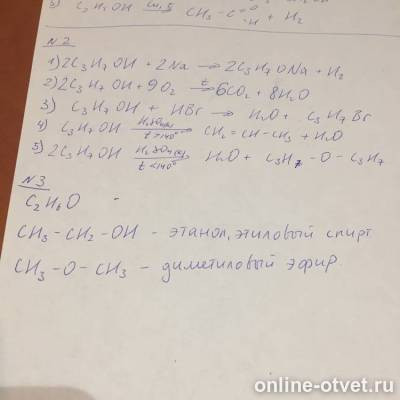 C₂H₅OH Cu, t CH₃-C=O -H + H₂
N2
1) 2C₃H₇OH + 2Na → 2C₃H₇ONa + H₂
2) 2C₃H₇OH + 9O₂ t→ 6CO₂ + 8H₂O
3) C₃H₇OH + HBr → H₂O + C₃H₇Br
4) C₃H₇OH H₂SO₄(к) t>140° → CH₂=CH-CH₃ + H₂O
5) 2C₃H₇OH H₂SO₄(к) t<140° → H₂O + C₃H₇-O-C₃H₇
N3
C₂H₆O
CH₃-CH₂-OH - этанол, этиловый спирт
CH₃-O-CH₃ - диметиловый эфир
online-otvet.ru